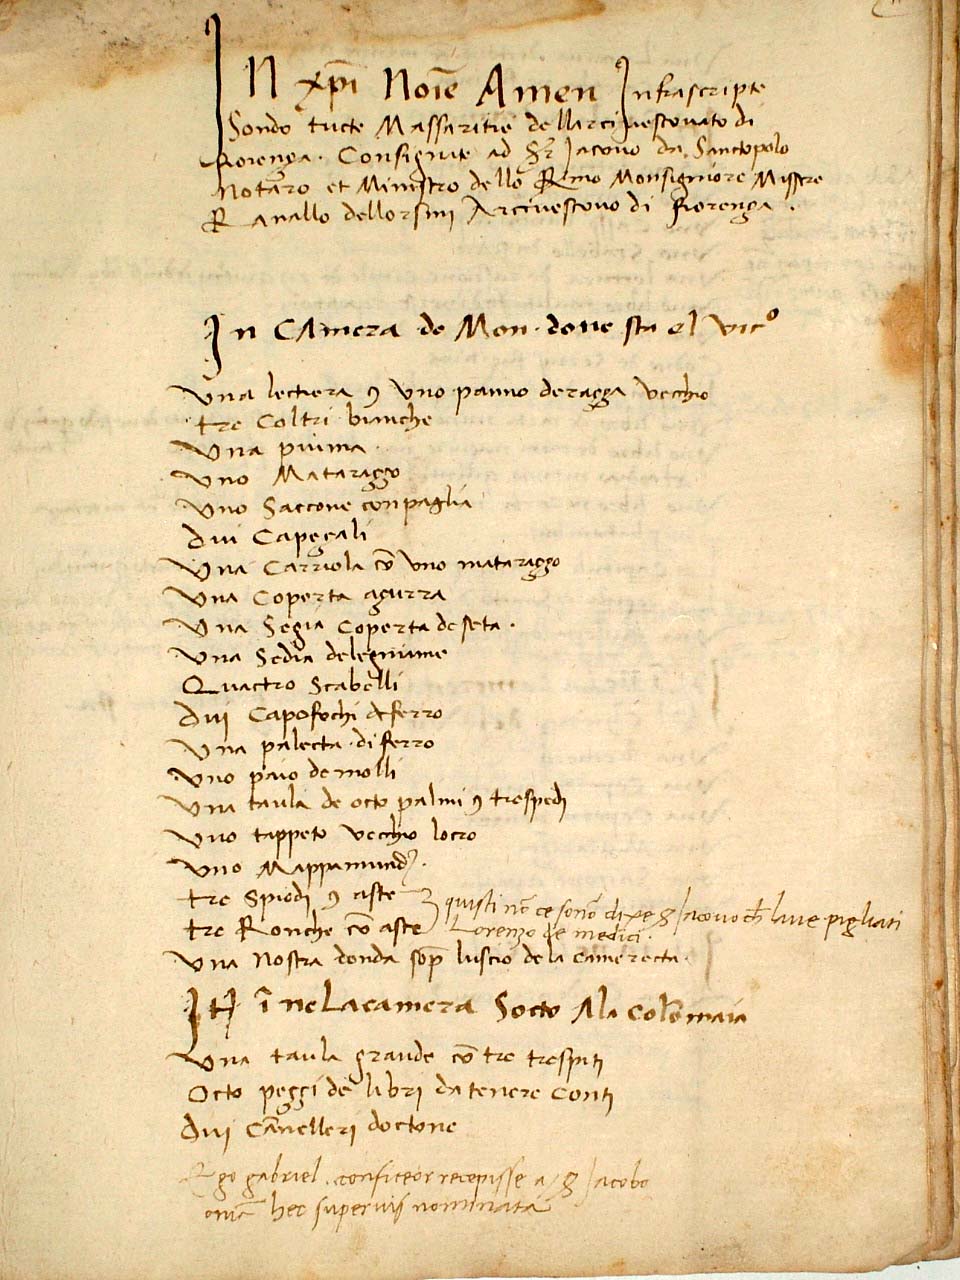 In xpi Noie Amen Infrascripte
Sondo tucte Massaritie dellarcivescovato di
fiorenza. Consignate ad Jacovo da Sanctopolo
Notaro et Ministro dello Rmo Monsigniore Missere
Ranallo dellorsini Arcivescovo di fiorenza.
In Camera de Mon. dove sta el vico
Una lectiera 9 uno panno de razza vecchio
tre Coltri bianche
Una piuma.
Uno Matarazzo
Uno Saccone con paglia
dui Capezzali
Una Carriola cō uno matarazzo
Una Coperta azurra
Una Segia Coperta de seta.
Una Sedia delegniame
Quactro Scabelli
dui Capofochi de ferro
Una palecta di ferro
Uno paio de molli
Una taula de octo palmi 9 trespedi
Uno tappeto vecchio
Uno Mappamundi.
tre Spiedi 9 aste
tre Ronche cō aste
quisti nō ce sonō dixe Jacovo ch lave pigliati
Lorenzo de medici.
Una Nostra donda sop luscio de la Camerecta.
It ī ne La camera Socto Ala Colōmaia
Una taula grande cō tre trespiti
Octo pezzi de libri da tenere Conti
dui Cānelleri doctone
Ego gabriel. confiteor recepisse a Jacobo
omīa hec supervis nominata